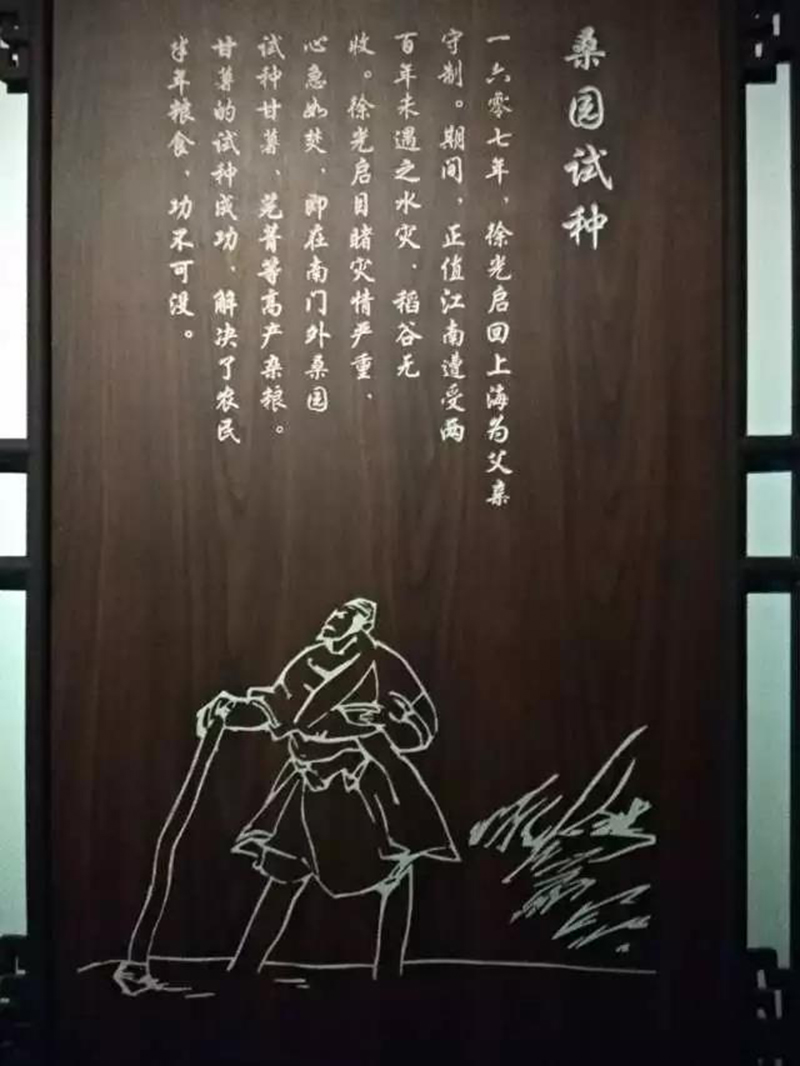 桑园试种
一六零七年，徐光启回上海为父亲
守制。期间，正值江南遭受两
百年未遇之水灾，稻谷无
收。徐光启目睹灾情严重，
心急如焚，即在南门外桑园
试种甘薯、芜菁等高产杂粮。
甘薯的试种成功，解决了农民
半年粮食，功不可没。